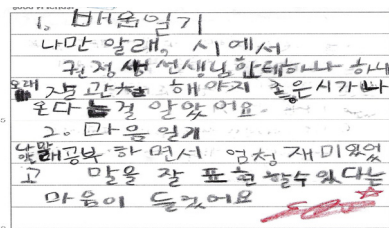 1. 배움일기
나만 알래, 시에서
권정생 선생님 한테하나 하나
오래 잘 관찰 해야지 좋은시가나
온다는걸 알았어요.
2. 마음일기
나만알래공부 하면서 엄청 재미있었
고 말을 잘 표현 할수있다는
마음이 들었어요